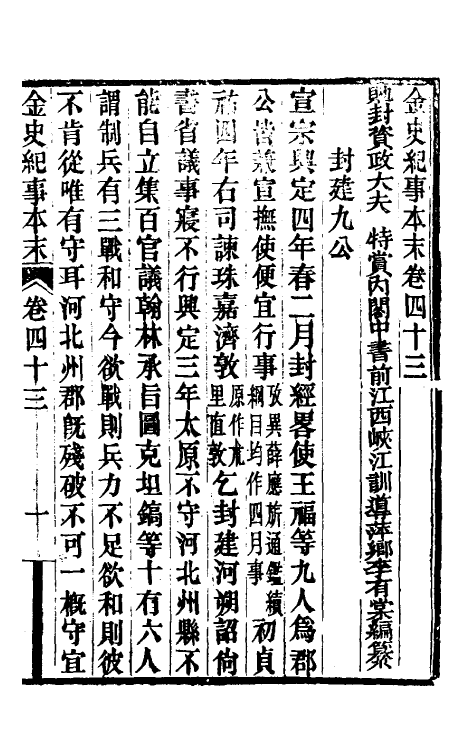 金史紀事本末卷四十三
勅封資政大夫　特賞內閣中書前江西峽江訓導萍鄉李有棠編纂
封建九公
宣宗興定四年春二月封經畧使王福等九人爲郡
公皆兼宣撫使便宜行事攷異薛應旂通鑑續綱目均作四月事初貞
祐四年右司諫珠嘉濟敦原作朮里直敦乞封建河朔詔尙
書省議事寢不行興定三年太原不守河北州縣不
能自立集百官議翰林承旨圖克坦鎬等十有六人
謂制兵有三戰和守今欲戰則兵力不足欲和則彼
不肯從唯有守耳河北州郡旣殘破不可一槪守宜
金史紀事本末　卷四十三　十一